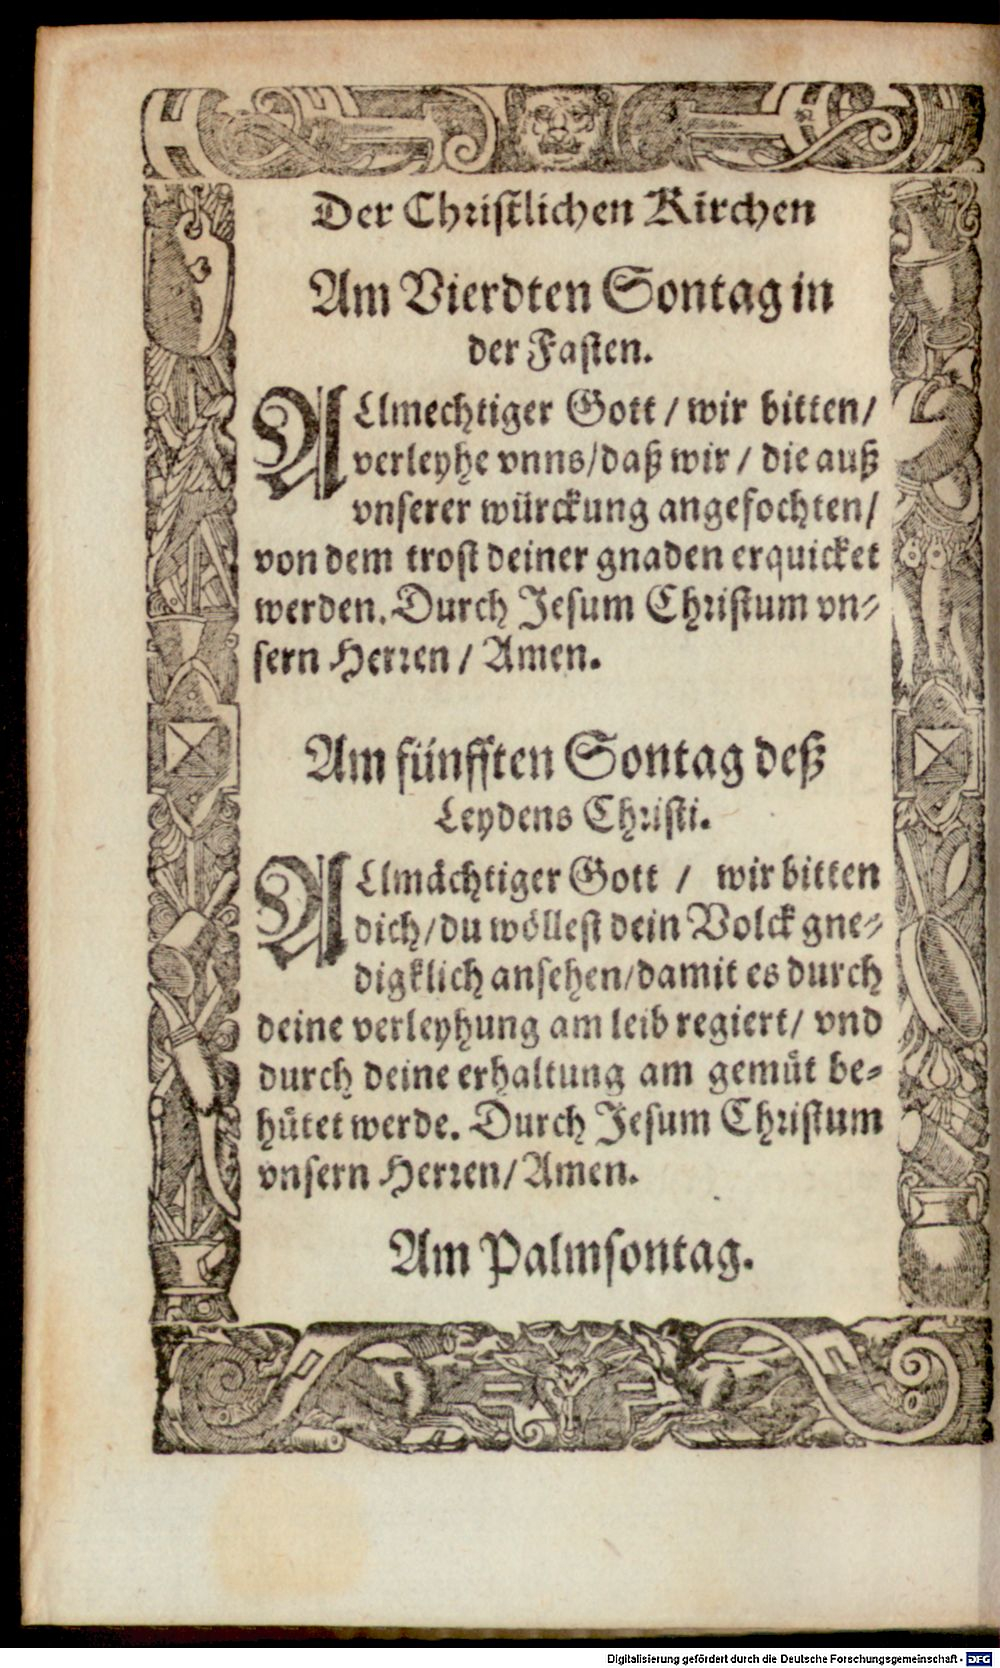 Der Christlichen Kirchen
Am Vierdten Sontag in
der Fasten.
ALlmechtiger Gott / wir bitten /
verleyhe vnns / daß wir / die auß
vnserer würckung angefochten /
von dem trost deiner gnaden erquicket
werden. Durch Jesum Christum vn⸗
sern Herren / Amen.
Am fünfften Sontag deß
Leydens Christi.
ALlmächtiger Gott / wir bitten
dich / du wöllest dein Volck gne⸗
digklich ansehen / damit es durch
deine verleyhung am leib regiert / vnd
durch deine erhaltung am gemüt be⸗
hütet werde. Durch Jesum Christum
vnsern Herren / Amen.
Am Palmsontag.
Digitalisierung gefördert durch die Deutsche Forschungsgemeinschaft - DFG